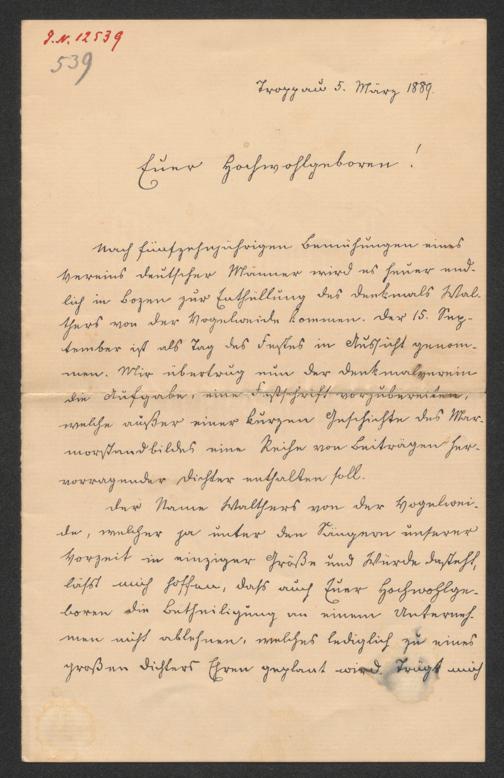 J.N. 12539
539
Troppau 5. März 1889.
Euer Hochwohlgeboren!
Nach fünfzehnjährigen Bemühungen eines
Vereins deutscher Männer wird es heuer end-
lich in Bozen zur Enthüllung des Denkmals Wal-
thers von der Vogelweide kommen. Der 15. Sep-
tember ist als Tag des Festes in Aussicht genom-
men. Mir übertrug nun der Denkmalverein
die Aufgabe, eine Festschrift vorzubereiten,
welche außer einer kurzen Geschichte des Mar-
morstandbildes eine Reihe von Beiträgen her-
vorragender Dichter enthalten soll.
Der Name Walthers von der Vogelwei-
de, welcher ja unter den Sängern unserer
Vorzeit in einziger Größe und Würde dasteht,
läßt mich hoffen, daß auch Euer Hochwohlge-
boren die Betheiligung an einem Unterneh-
men nicht ablehnen, welches lediglich zu eines
großen Dichters Ehren geplant wird. Trägt mich